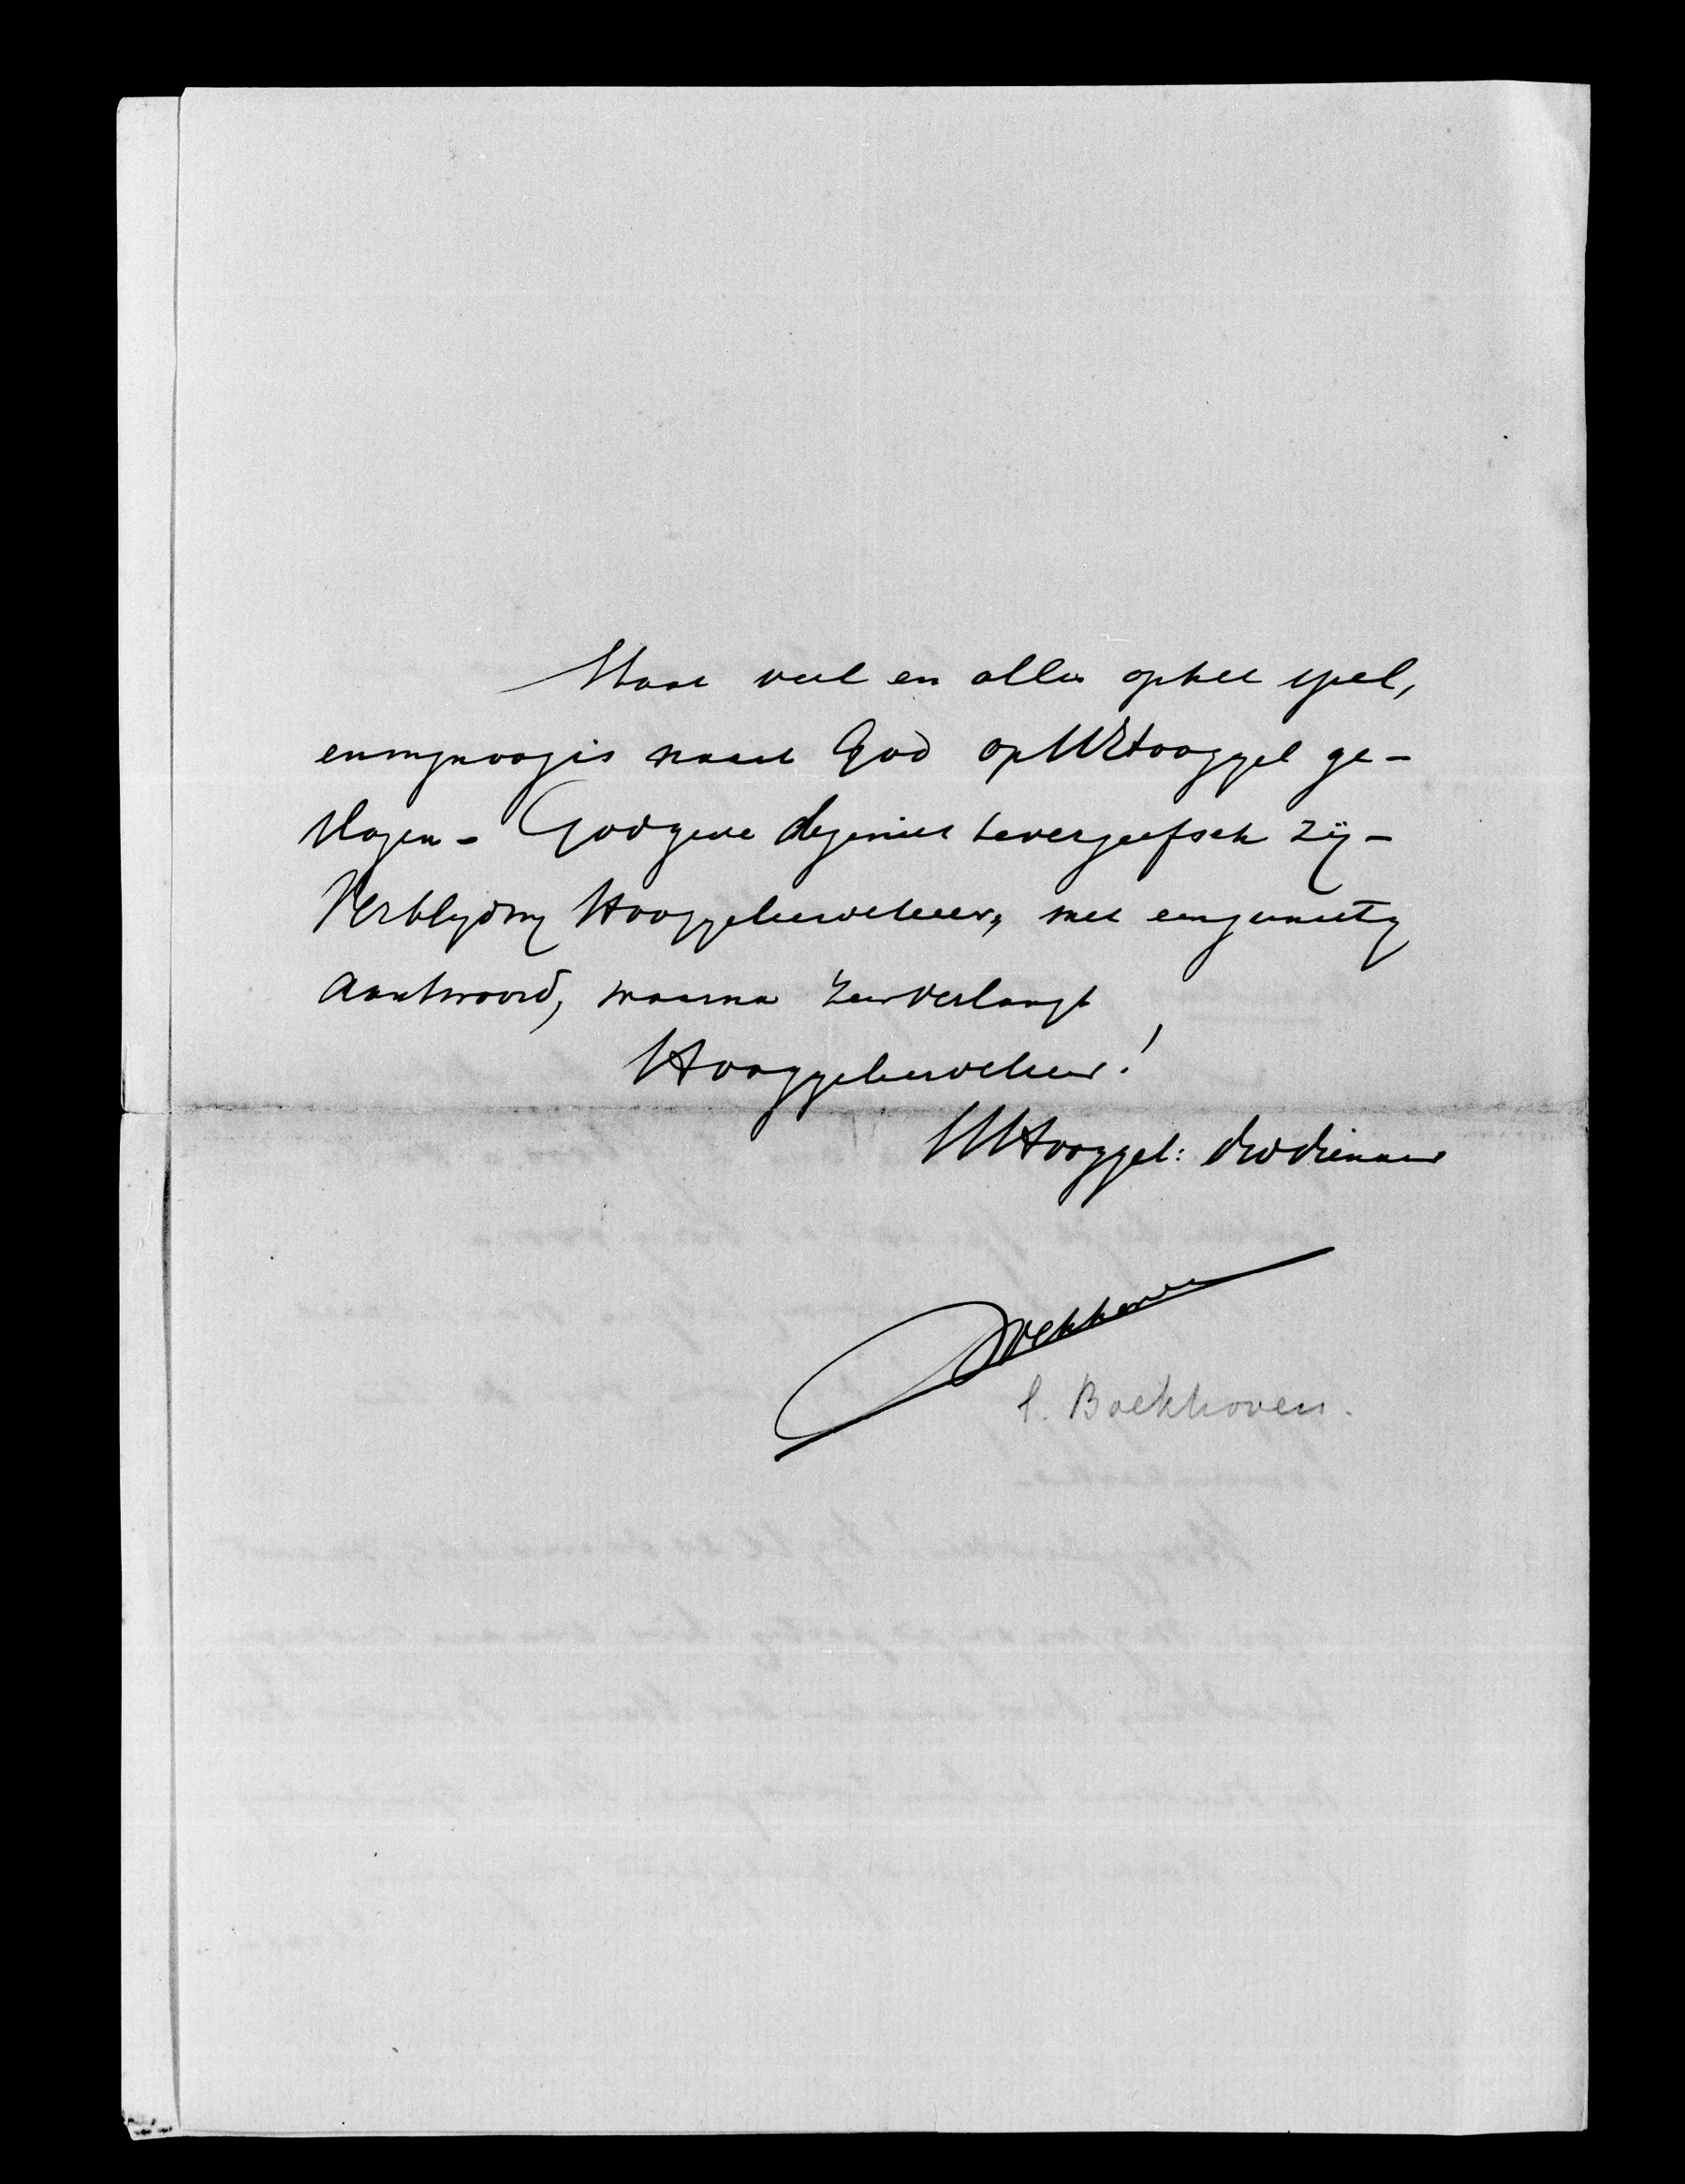 Staat veel en alles op het spel,
en mijn oog is naast God op UHooggel ge-
slagen - God geve dezeniet te vergeefsch zij -
Verblijd mij Hooggeleerde heer, met een gunstig
Antwoord, waarna zeer verlangt
Hooggeleerde heer!
UHooggel: dwdienaar
Boekhoven
C. Boekhoven.